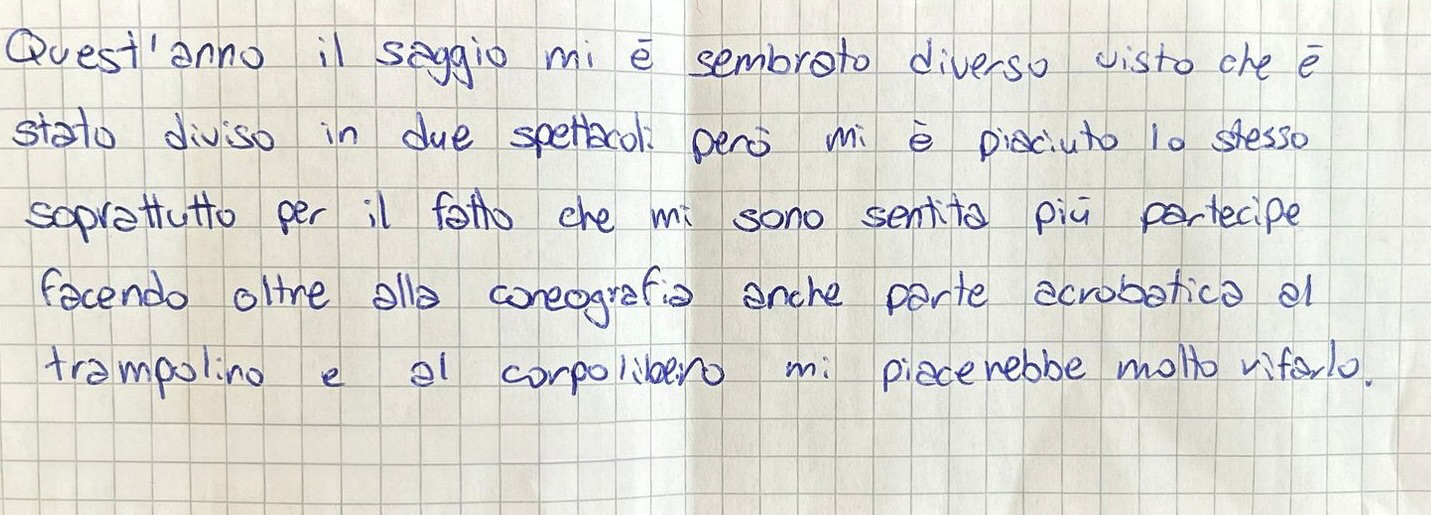 Quest'anno il saggio mi è sembrato diverso visto che è
stato diviso in due spettacoli però mi è piaciuto lo stesso
soprattutto per il fatto che mi sono sentita più partecipe
facendo oltre alla coreografia anche parte acrobatica al
trampolino e al corpolibero mi piacerebbe molto rifarlo.